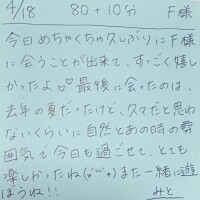 4/18　80+10分　F様
今日めちゃくちゃ久しぶりにF様
に会うことが出来て、すっごく嬉し
かったよ♡♡最後に会ったのは、
去年の夏だったけど、久々だと思わ
ないくらいに自然とあの時の雰
囲気で今日も過ごせて、とても
楽しかったね(˘ᵕ˘)また一緒に遊
ぼうね!!
みと